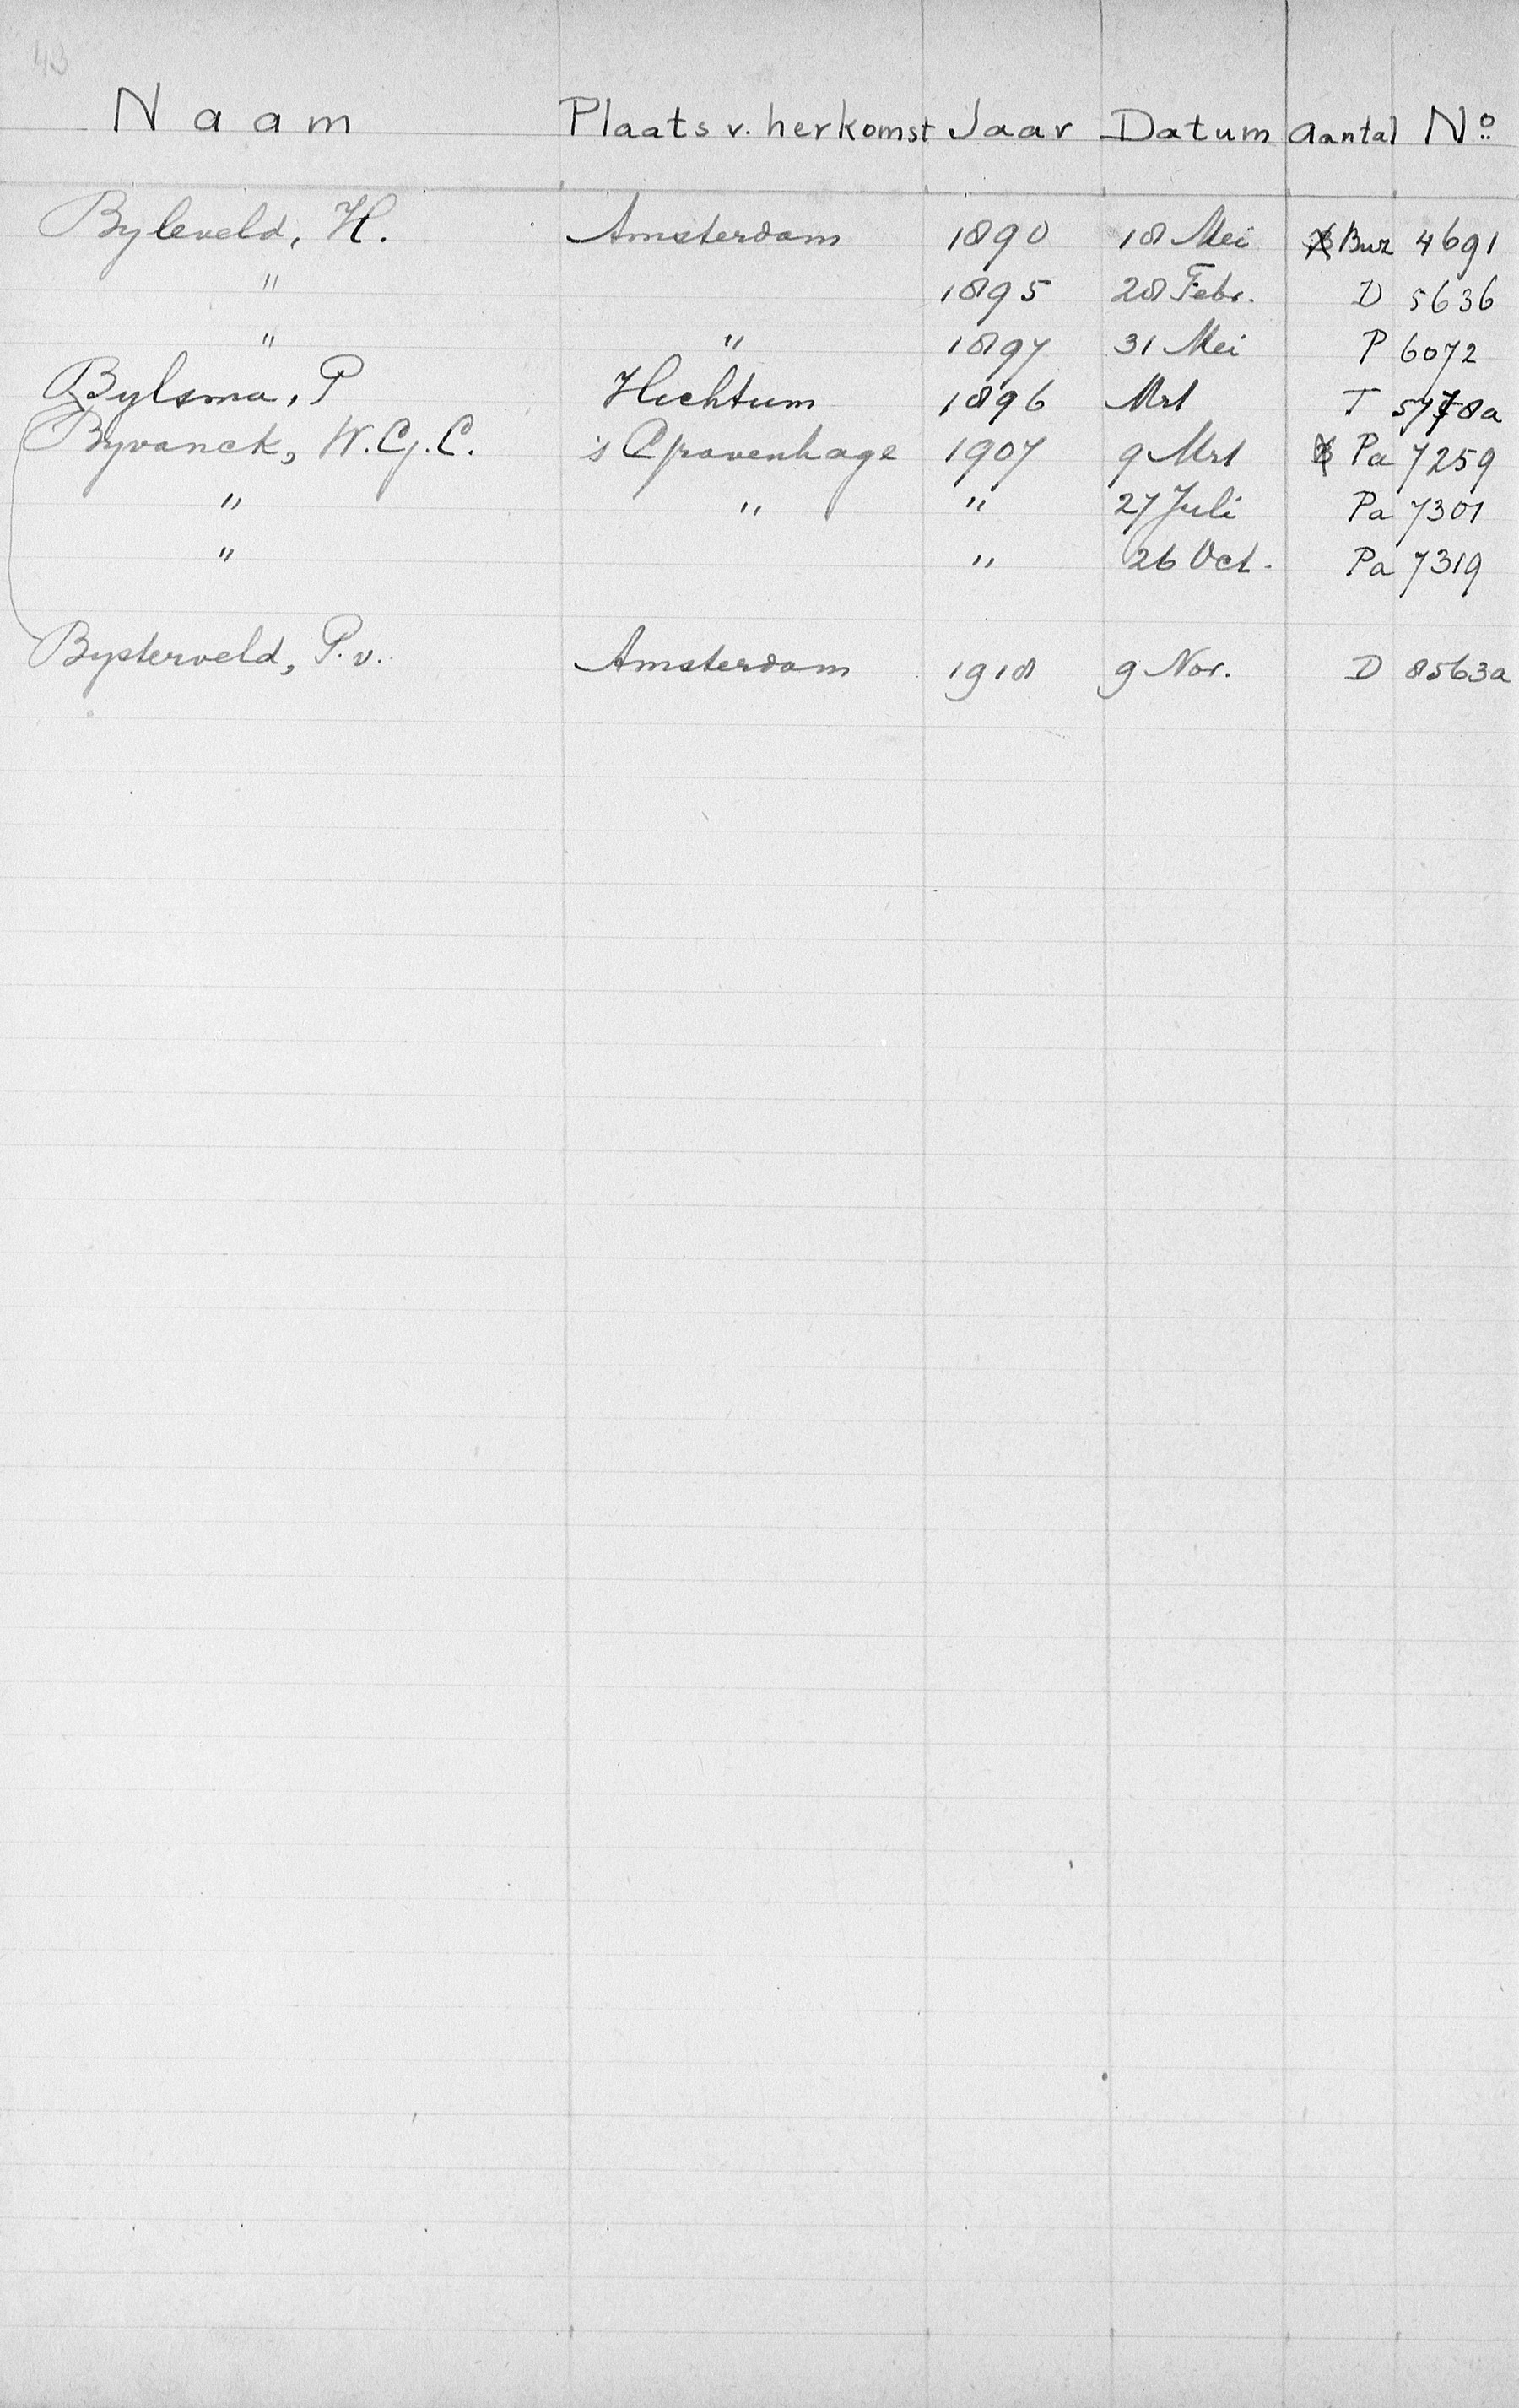 43
Naam Plaats v. herkomst Jaar Datum Aantal No
Byleveld, H. Amsterdam 1890 18 Mei Buz 4691
" 1895 28 Febr. D 5636
" " 1897 31 Mei P 6072
Bylsma, P Hichtum 1896 Mrt T 5778a
Byvanck, W.G.C. 's Gravenhage 1907 9 Mrt Pa 7259
" " " 27 Juli Pa 7301
" " 26 Oct. Pa 7319
Bysterveld, P. v. Amsterdam 1918 9 Nov. D 8563a